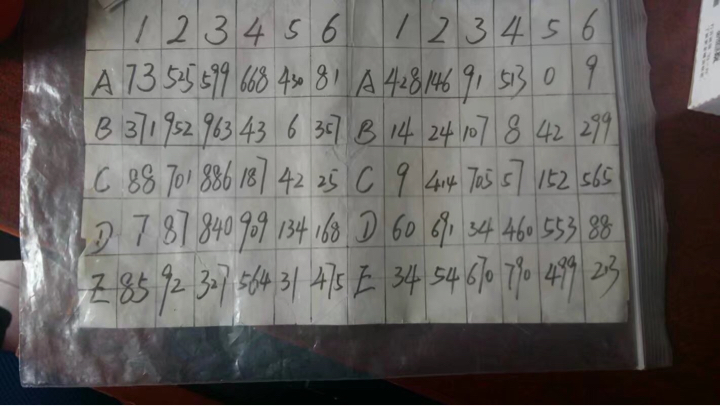 1 2 3 4 5 6 1 2 3 4 5 6
A 73 525 599 668 430 81 A 428 146 91 513 0 9
B 371 952 963 43 6 357 B 14 24 107 8 42 299
C 88 701 886 187 42 25 C 9 414 705 57 152 565
D 7 87 840 909 134 168 D 60 691 34 460 553 88
E 85 92 327 564 31 475 E 34 54 670 790 499 203